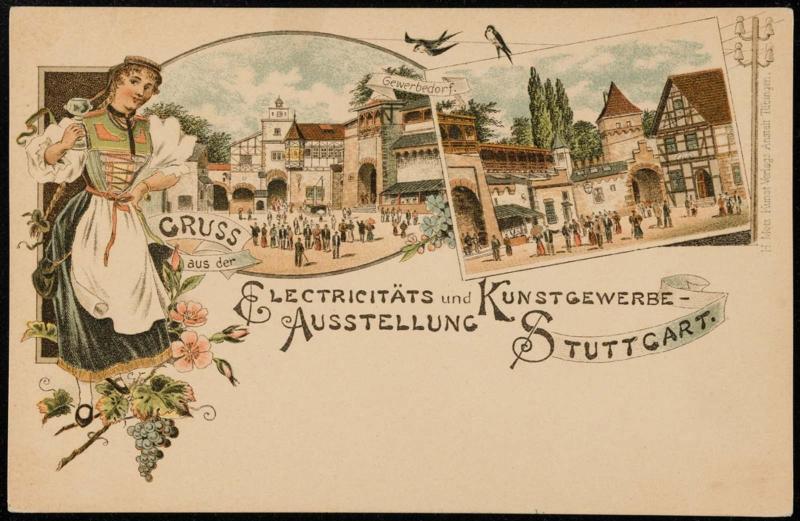 Gewerbedorf.
GRUSS
aus der
ELECTRICITÄTS und KUNSTGEWERBE-
AUSSTELLUNG
STUTTGART.
Kunst Verlags Anstalt Tübingen.